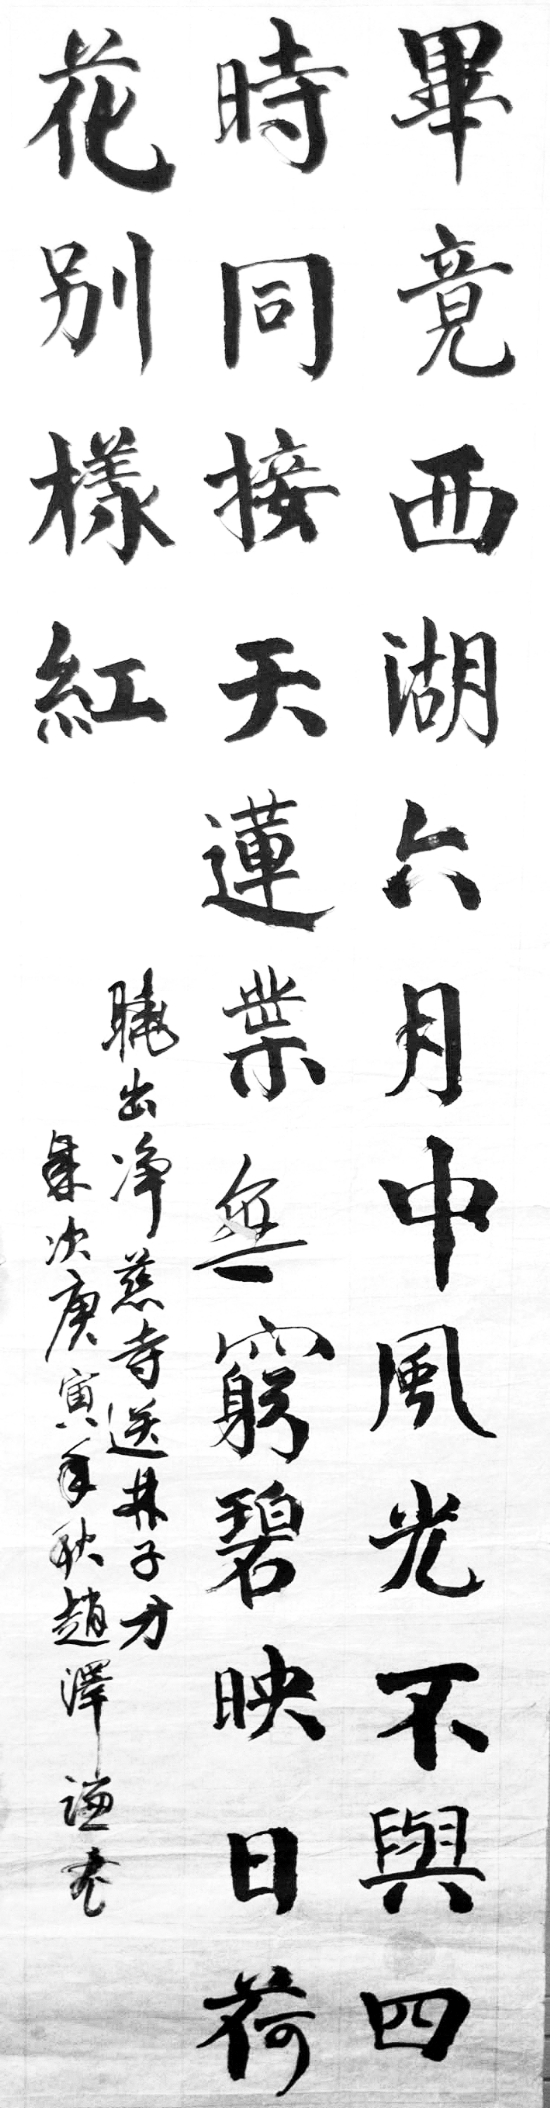 畢竟西湖六月中風光不與四
時同接天蓮葉無窮碧映日荷
花別樣紅
曉出净慈寺送林子方
歲次庚寅年秋趙澤謙書